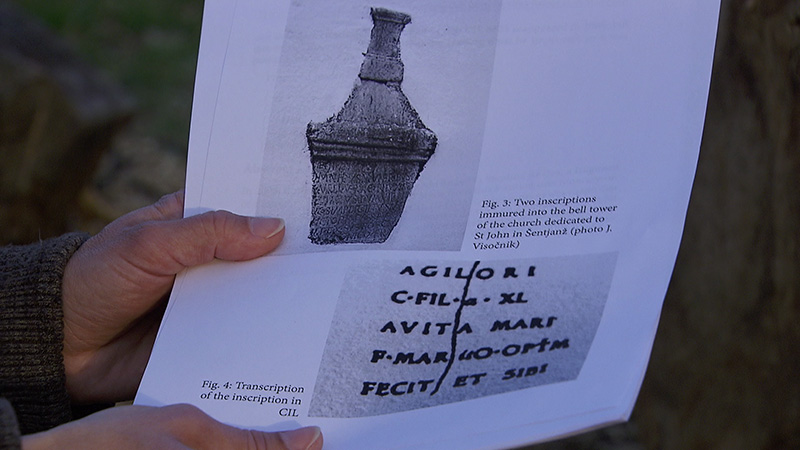 Fig. 3: Two inscriptions
immured into the bell tower
of the church dedicated to
St John in Šentjanž (photo J.
Visočnik)
AGILORI
C·FIL· · XL
AVITA MARI
F·MAR O·OPTM
FECIT ET SIBI
Fig. 4: Transcription
of the inscription in
CIL